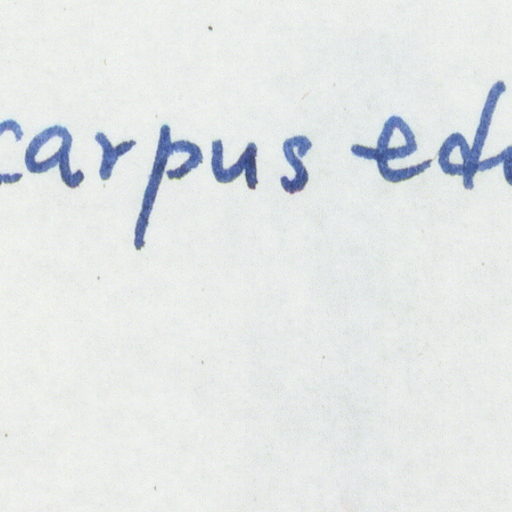 carpus edu